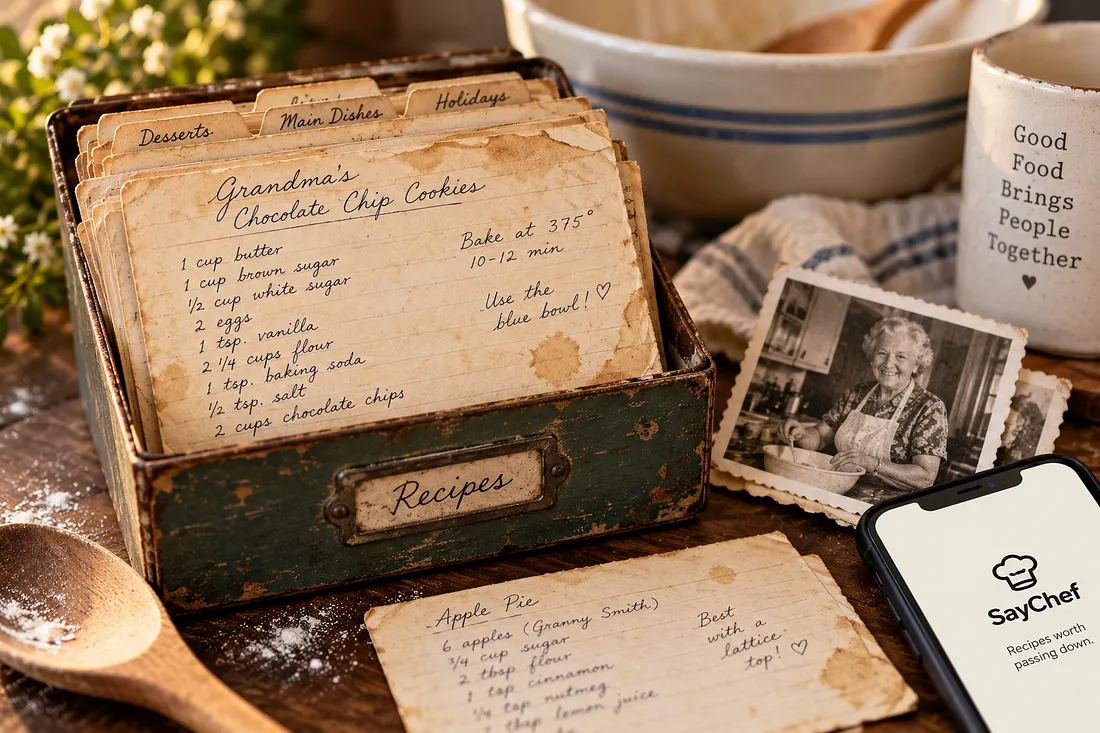 Desserts
Main Dishes
Holidays
Grandma's
Chocolate Chip Cookies
1 cup butter
1 cup brown sugar
1/2 cup white sugar
2 eggs
1 tsp. vanilla
2 1/4 cups flour
1 tsp. baking soda
1/2 tsp. salt
2 cups chocolate chips
Bake at 375°
10-12 min
Use the
blue bowl! ♡
Recipes
Good
Food
Brings
People
Together
♥
Apple Pie
6 apples (Granny Smith)
3/4 cup sugar
2 tbsp flour
1 tsp cinnamon
1/4 tsp nutmeg
1 tbsp lemon juice
Best
with a
lattice
top! ♡
SayChef
Recipes worth
passing down.